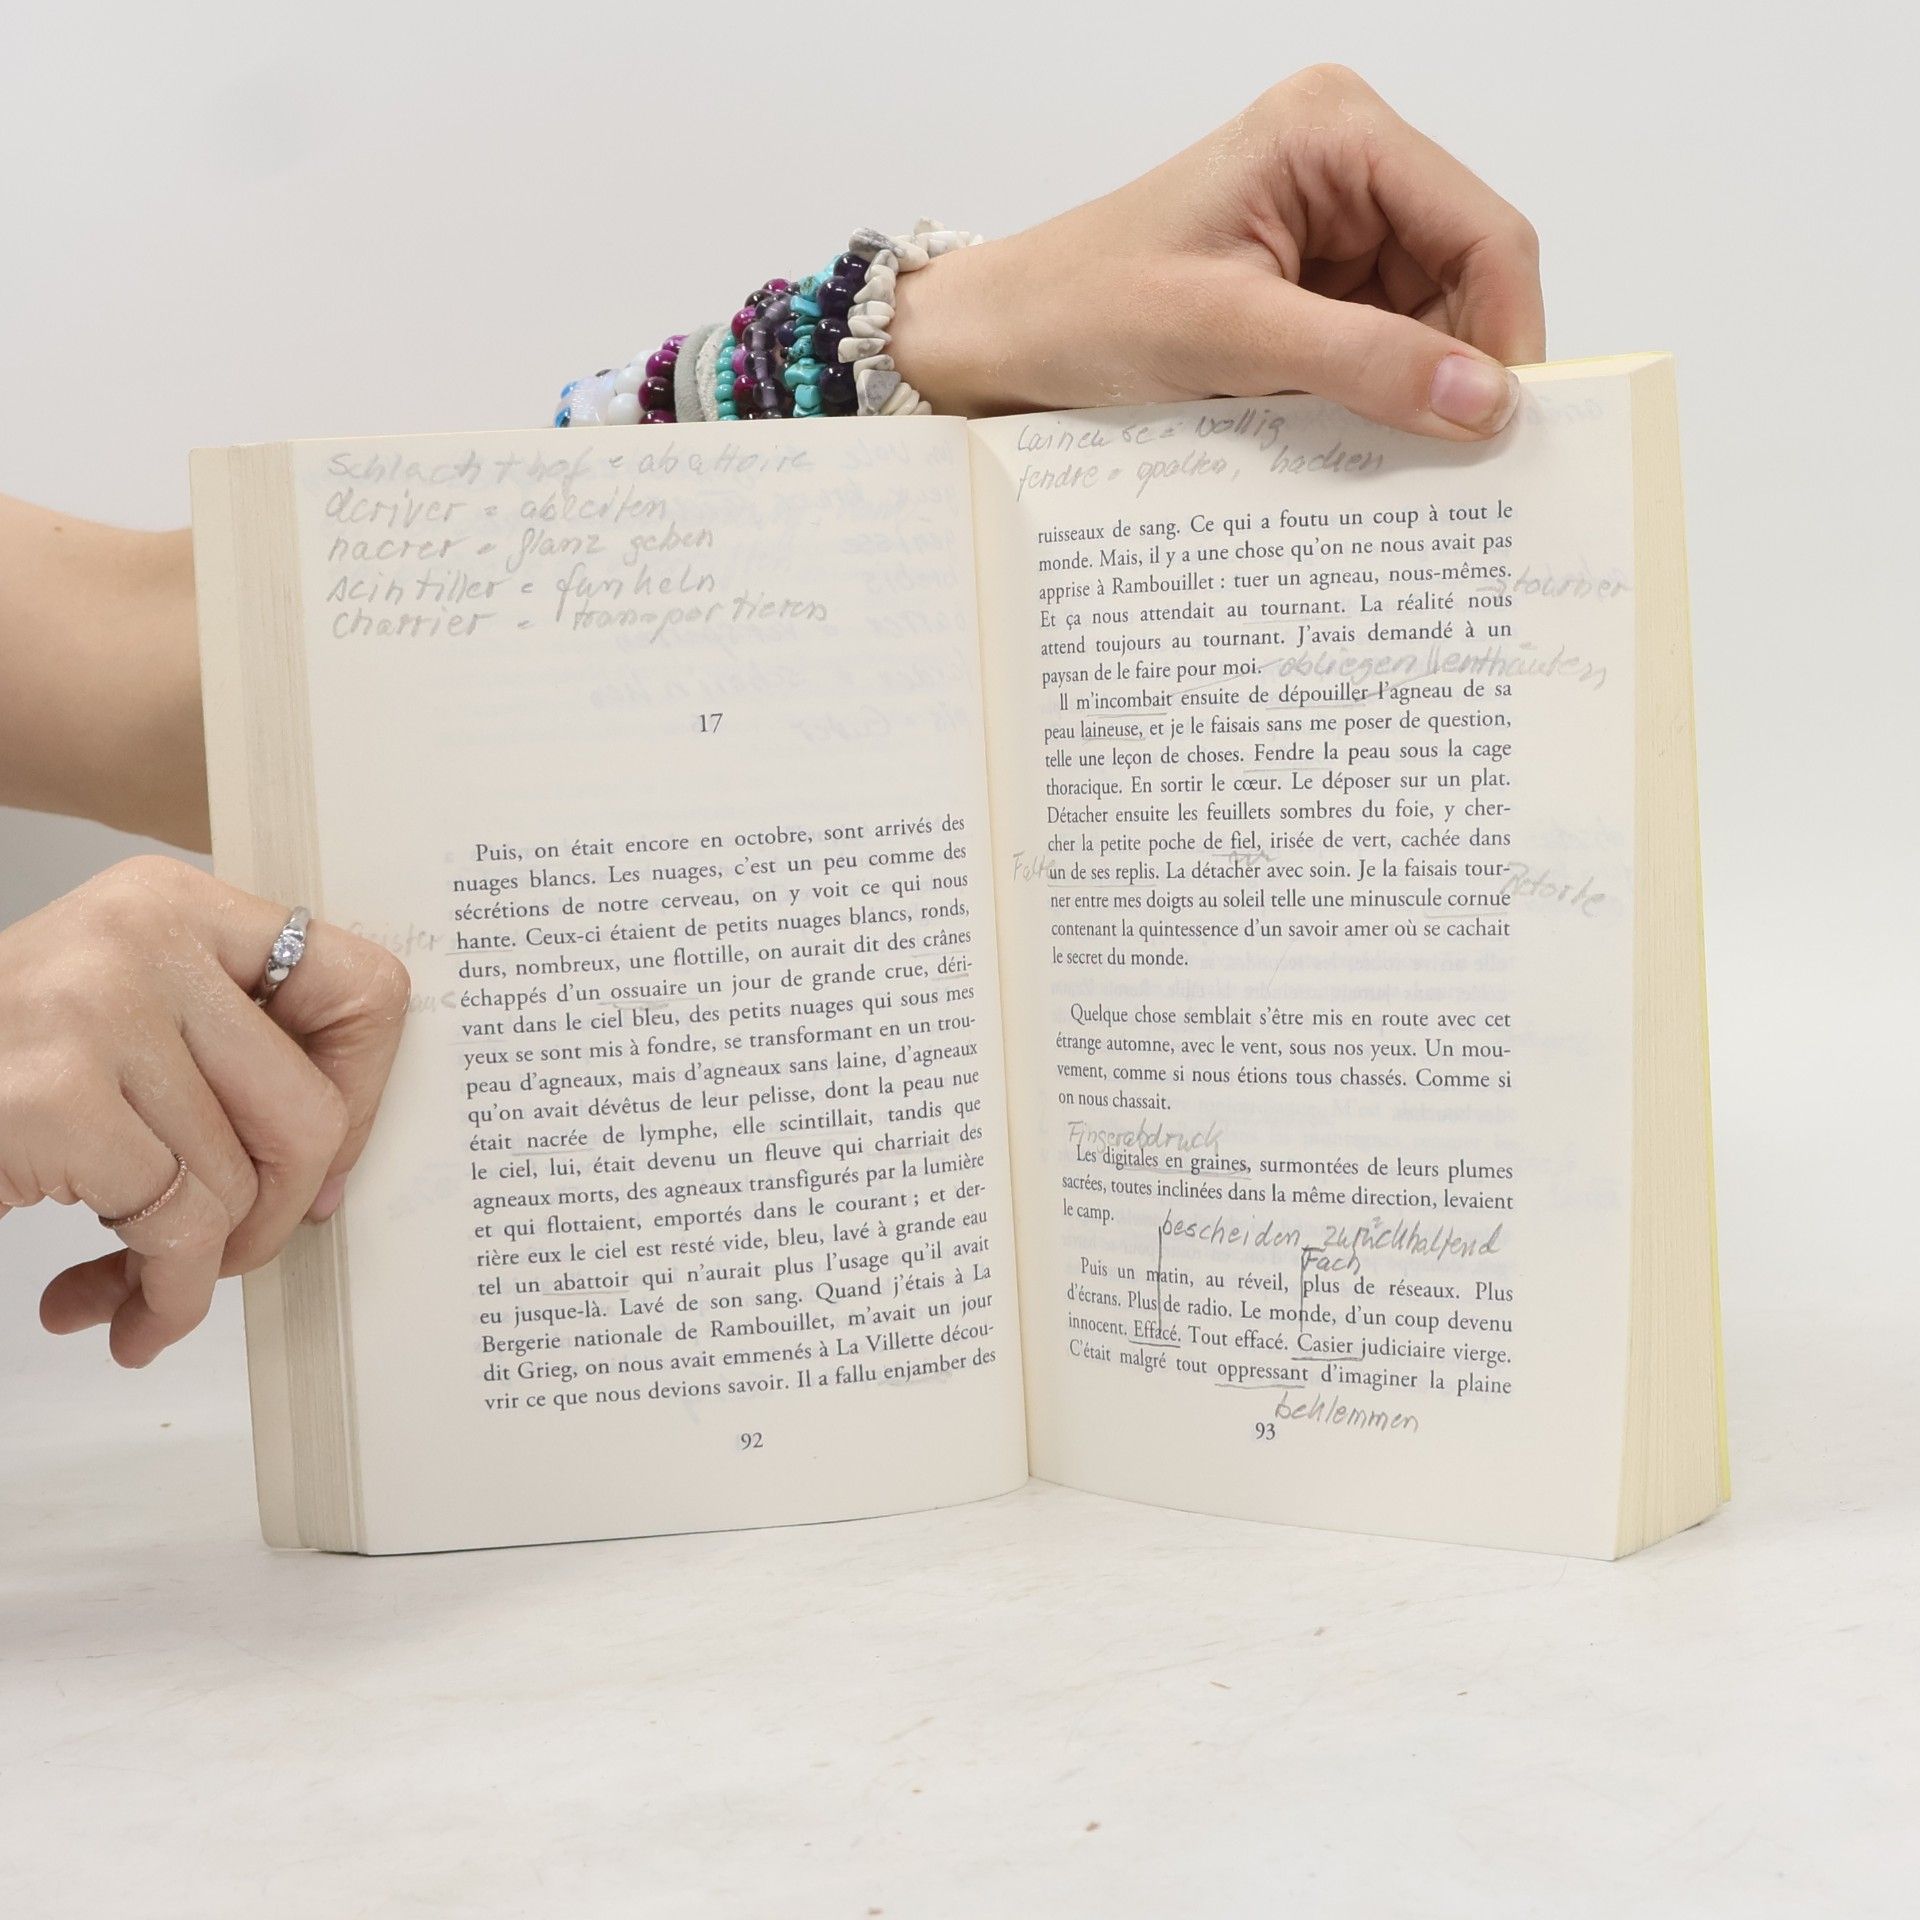 Schlachthof = abattoire
dériver = ableiten
nacrer = glanz geben
scintiller = funkeln
charrier = transportieren
17
Puis, on était encore en octobre, sont arrivés des
nuages blancs. Les nuages, c'est un peu comme des
sécrétions de notre cerveau, on y voit ce qui nous
hante. Ceux-ci étaient de petits nuages blancs, ronds,
durs, nombreux, une flottille, on aurait dit des crânes
échappés d'un ossuaire un jour de grande crue, déri-
vant dans le ciel bleu, des petits nuages qui sous mes
yeux se sont mis à fondre, se transformant en un trou-
peau d'agneaux, mais d'agneaux sans laine, d'agneaux
qu'on avait dévêtus de leur pelisse, dont la peau nue
était nacrée de lymphe, elle scintillait, tandis que
le ciel, lui, était devenu un fleuve qui charriait des
agneaux morts, des agneaux transfigurés par la lumière
et qui flottaient, emportés dans le courant ; et der-
rière eux le ciel est resté vide, bleu, lavé à grande eau
tel un abattoir qui n'aurait plus l'usage qu'il avait
eu jusque-là. Lavé de son sang. Quand j'étais à La
Bergerie nationale de Rambouillet, m'avait un jour
dit Grieg, on nous avait emmenés à La Villette décou-
vrir ce que nous devions savoir. Il a fallu enjamber des
92
laineuse = wollig
fendre = spalten, hacken
ruisseaux de sang. Ce qui a foutu un coup à tout le
monde. Mais, il y a une chose qu'on ne nous avait pas
apprise à Rambouillet : tuer un agneau, nous-mêmes.
tourner
Et ça nous attendait au tournant. La réalité nous
attend toujours au tournant. J'avais demandé à un
paysan de le faire pour moi.
obliegen enthäuten
Il m'incombait ensuite de dépouiller l'agneau de sa
peau laineuse, et je le faisais sans me poser de question,
telle une leçon de choses. Fendre la peau sous la cage
thoracique. En sortir le cœur. Le déposer sur un plat.
Détacher ensuite les feuillets sombres du foie, y cher-
cher la petite poche de fiel, irisée de vert, cachée dans
Falte
un de ses replis. La détacher avec soin. Je la faisais tour-
Retorte
ner entre mes doigts au soleil telle une minuscule cornue
contenant la quintessence d'un savoir amer où se cachait
le secret du monde.
Quelque chose semblait s'être mis en route avec cet
étrange automne, avec le vent, sous nos yeux. Un mou-
vement, comme si nous étions tous chassés. Comme si
on nous chassait.
Fingerabdruck
Les digitales en graines, surmontées de leurs plumes
sacrées, toutes inclinées dans la même direction, levaient
le camp.
bescheiden, zurückhaltend
Fach
Puis un matin, au réveil, plus de réseaux. Plus
d'écrans. Plus de radio. Le monde, d'un coup devenu
innocent. Effacé. Tout effacé. Casier judiciaire vierge.
C'était malgré tout oppressant d'imaginer la plaine
beklemmen
93